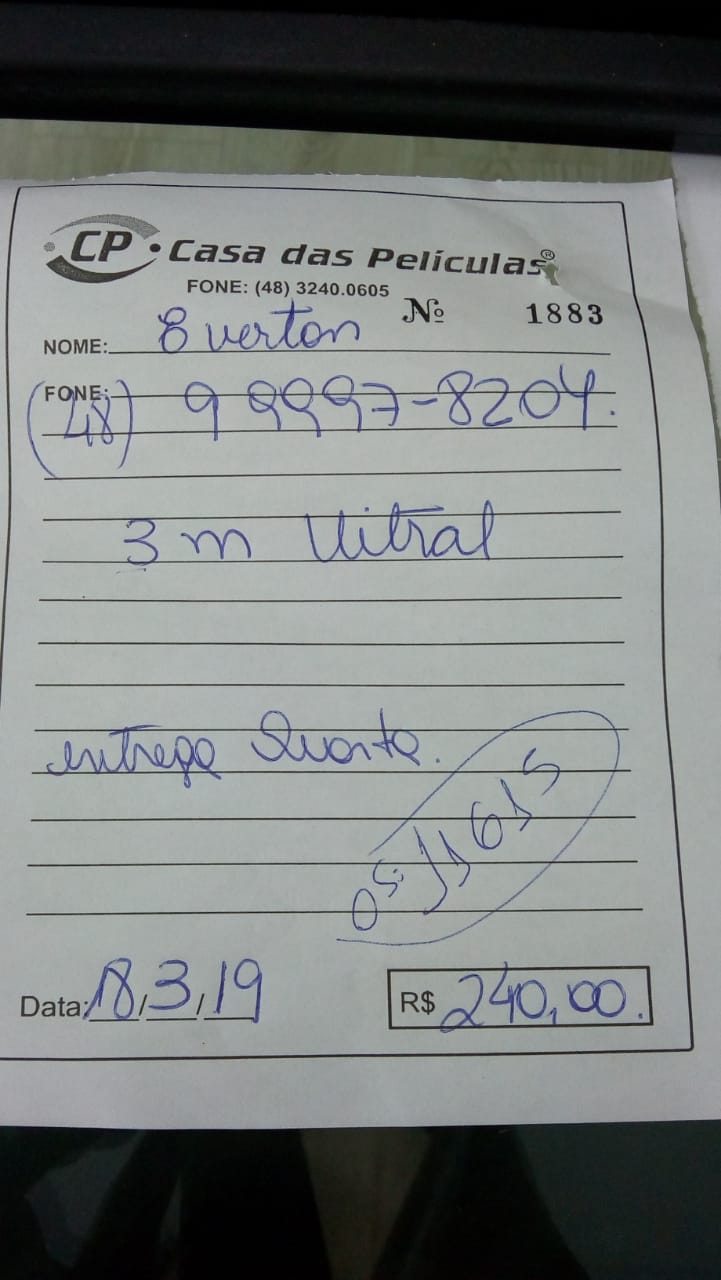 CP • Casa das Películas®
FONE: (48) 3240.0605
Nº 1883
NOME: Everton
FONE: (48) 9 9997-8204.
3 m Vitral
entrega Quarta.
OS: 11615
Data: 18/3/19
R$ 240,00.